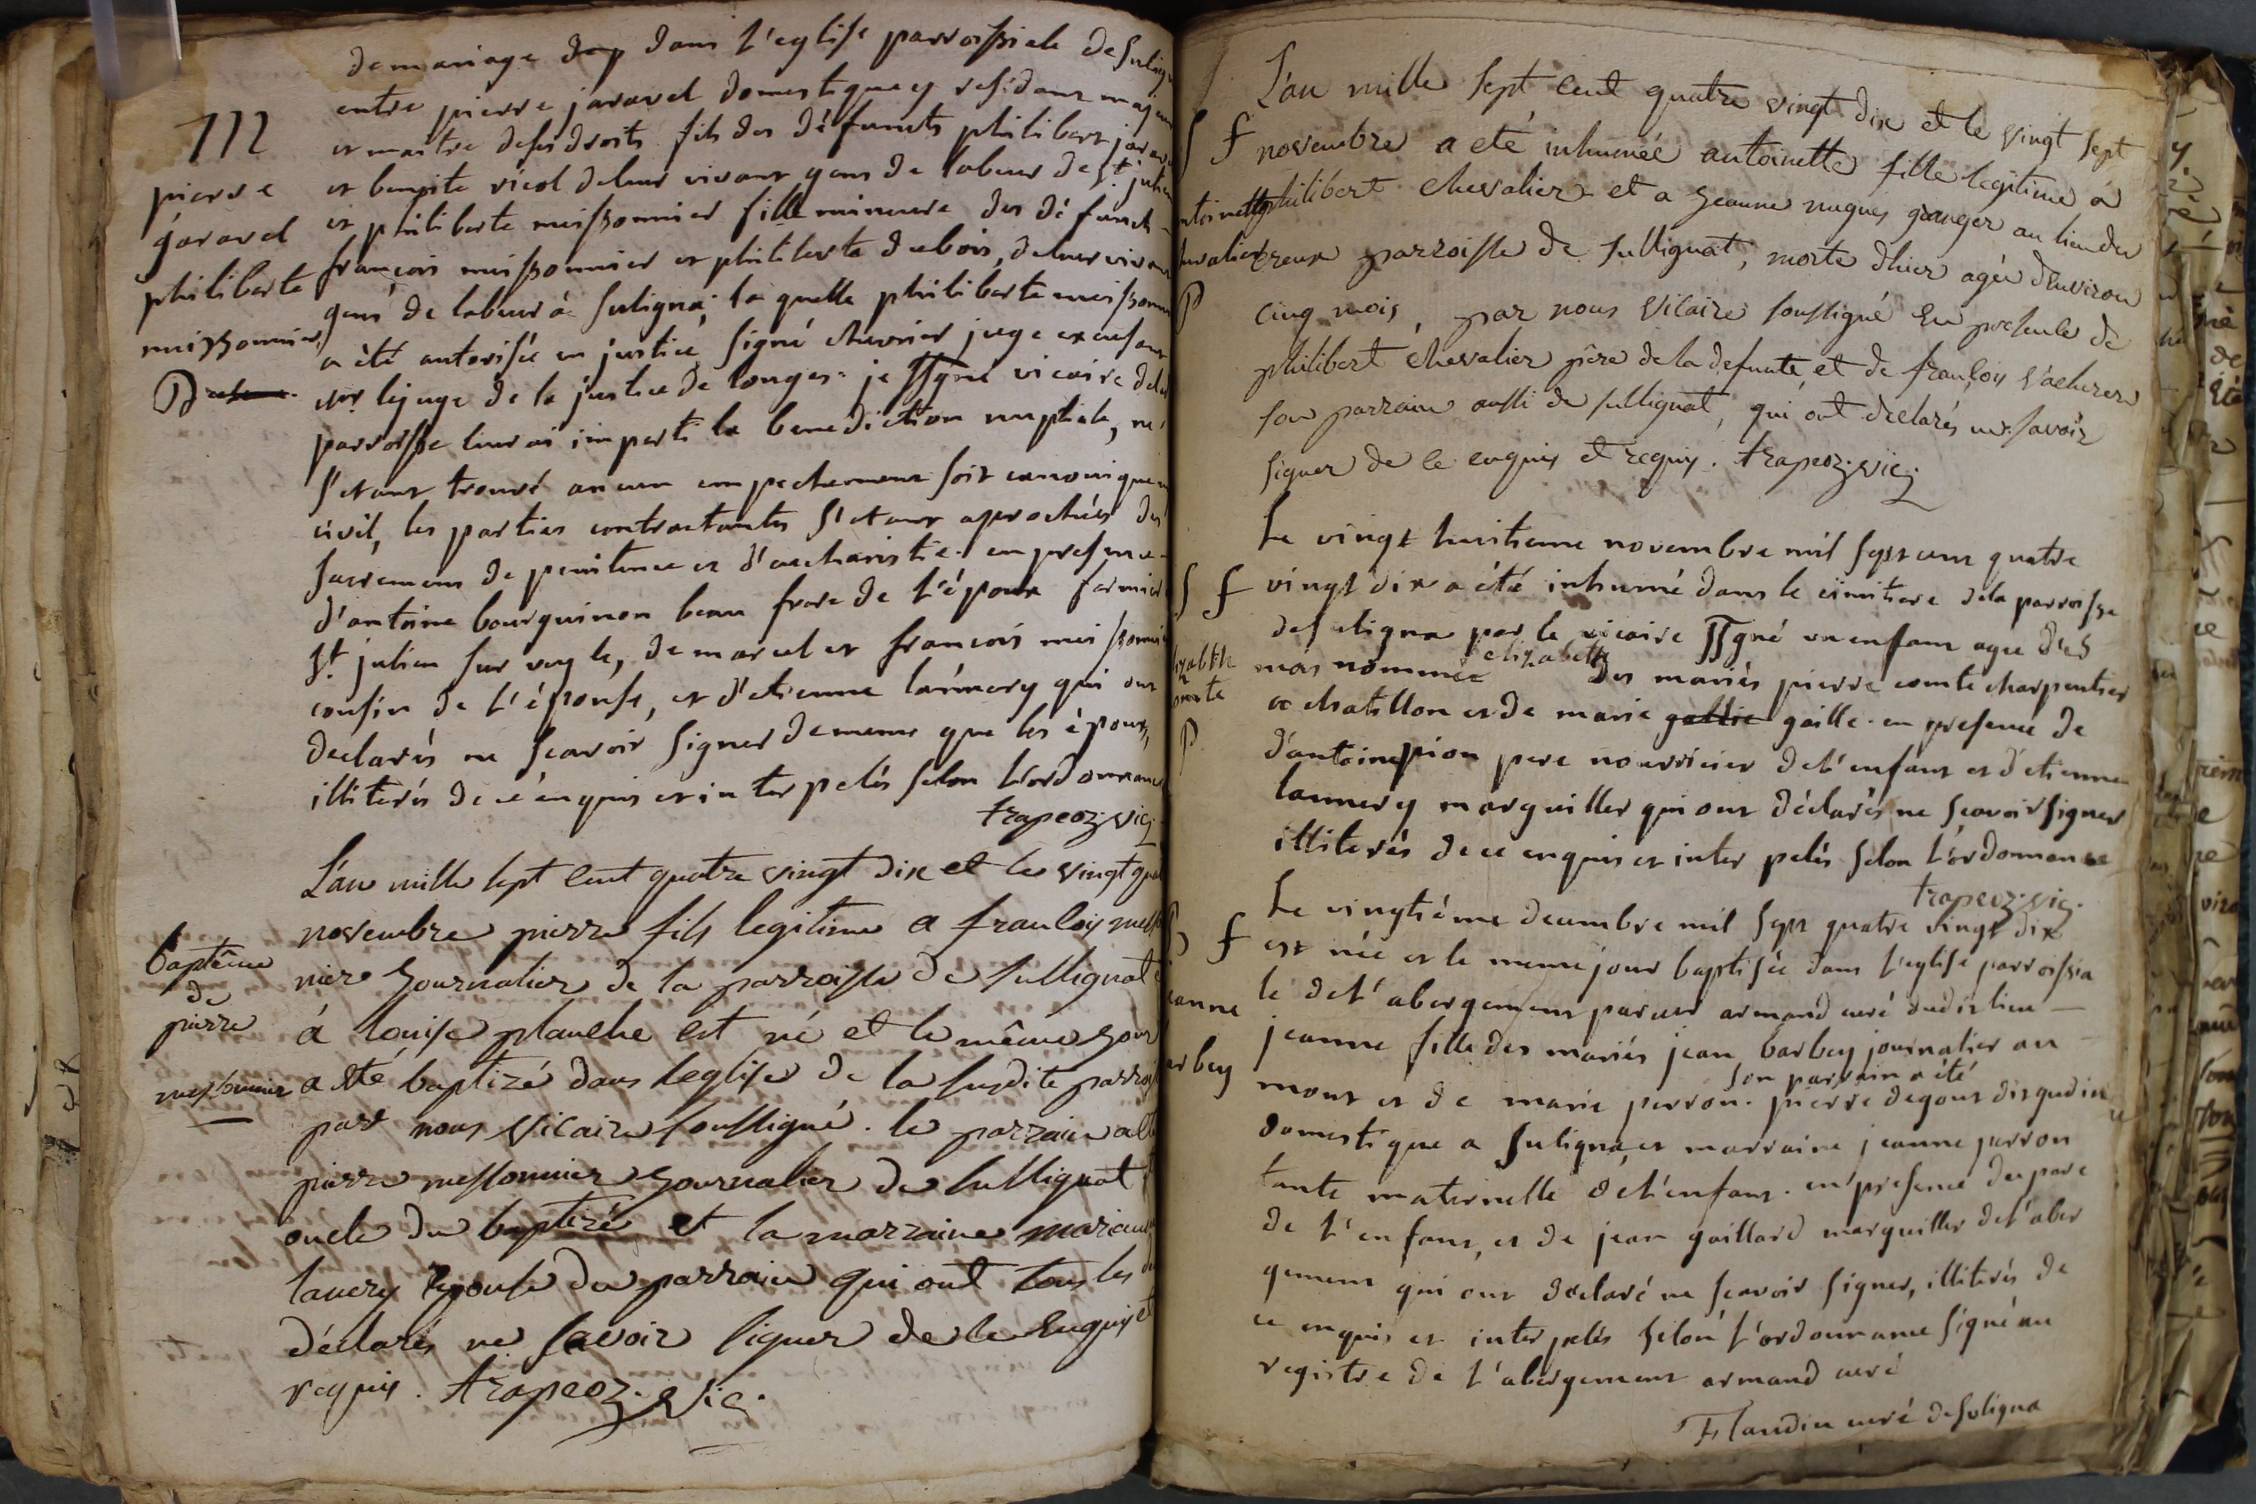 demariage dap dans l'eglise parroissiale de
entre pierre jaravel domestique y residant
et maitre deses droits fils des défuncts philibert
et benoite vicol deleur vivant gens de labeur de st.
et philiberte missonnier fille mineure des défuncts
françois missonnier et philiberte dubois, deleur
gens de labeur à suligna; la quelle philiberte
a été autorisée en justice signé chevrier juge
le juge de la justice de longes. je ssgné vicaire
parroisse leur ai imparti la benediction nuptiale, ne
s'etant trouvé aucun empechement soit canonique
civil, les parties contractantes s'etant aprochées des
sacremens de penitence et d'eucharistie. en presence
d'antoine bourguinon beau frere de l'époux fermier
st. julien sur veyle, de marcel et françois
cousin de l'épouse, et d'etienne lannery qui ont
declarés ne scavoir signer dememe que les époux,
illiterés de cé enquis et inter pelés selon l'ordonnance
trapeoz. vic.
112
pierre
jaravel
philiberte
missonnier
L'an mille sept cent quatre vingt dix et le vingt
novembre pierre fils legitime a françois
nier journalier de la parroisse de sullignat
á louise planche est né et le même jour
a été baptizé dans leglise de la susdite
par nous vicaire soussigné. le parrain
pierre messonnier journalier de sullignat
oncle du baptizé et la marraine
lanery epouse du parrain qui ont tous les
déclarés ne savoir signer de ce enquis et
requis. trapeoz. vic.
baptême
de
pierre
messonnier
L'an mille sept cent quatre vingt dix et le vingt sept
S f novembre a eté inhumée antoinette fille legitime á
philibert chevalier et a jeanne nugues granger au lieu des
creux parroisse de sullignat, morte d'hier agée denviron
P cinq mois, par nous vicaire soussigné en presence de
philibert chevalier père de la defunte, et de françois vacheres
son parrain aussi de sullignat, qui ont declarés ne savoir
signer de ce enquis et requis. trapeoz. vic.
Le vingt huitieme novembre mil sept cent quatre
S f vingt dix a été inhumé dans le cimitiere dela parroisse
desuligna par le vicaire ssgné un enfant agée d'
mois nommée elizabeth des mariés pierre comte charpentier
a chatillon et de marie gallie gaille. en presence de
P d'antoine pion pere nourricier del'enfant et d'etienne
lannery marguiller qui ont déclarés ne scavoir signer
illiterés de ce enquis et inter pelés selon l'ordonnance
trapeoz. vic.
Le vingtiéme decembre mil sept quatre vingt dix
f est née et le meme jour baptisée dans l'eglise parroissia
le de l'abergement par mr armand curé dudit lieu
jeanne fille des mariés jean barbey journalier au
mont et de marie perron. son parrain a été pierre degout
domestique a suligna, et marraine jeanne perron
tante maternelle del'enfant. en presence du pere
de l'enfant, et de jean gaillard marguiller del'aber
gement qui ont declaré ne scavoir signer, illiterés de
ce enquis et inter pelés selon l'ordonnance signé au
registre de l'abergement armand curé
Flandin curé desuligna